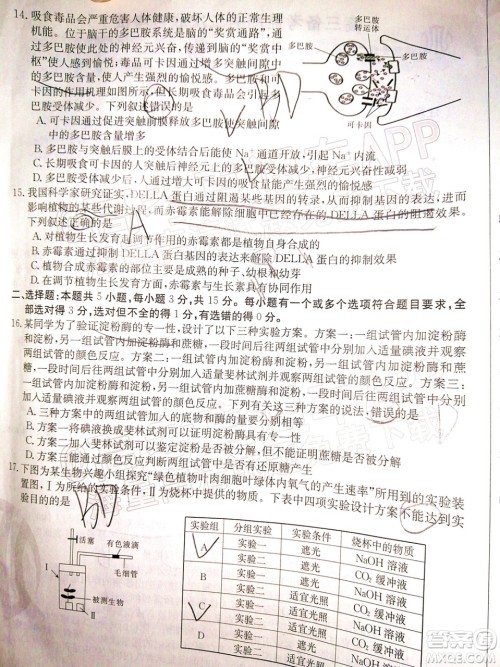 14. 吸食毒品会严重危害人体健康，破坏人体的正常生理
机能。位于脑干的多巴胺神经系统是脑的“奖赏通路”，通
过多巴胺使此处的神经元兴奋，传递到脑的“奖赏中
枢”使人感到愉悦；毒品可卡因对突触间隙
多巴胺
多巴胺
转运体
可卡因
卡因的作用机理如图所示，但长期吸食毒品会引起多
巴胺受体减少。下列叙述错误的是
A. 可卡因通过促进突触前膜释放多巴胺使突触间隙
中的多巴胺含量增多
B. 多巴胺与突触后膜上的受体结合后能使Na⁺通道开放，引起Na⁺内流
C. 长期吸食可卡因者神经元上的多巴胺受体减少，突触后神经元兴奋性减弱
15. 我国科学家研究证实，DELLA蛋白通过阻遏某些基因的转录，从而抑制基因的表达，进而
影响植物的某些代谢过程，而赤霉素能解除细胞中已经存在的DELLA蛋白的阻遏效果。
下列叙述正确的是
A. 对植物生长发育起调节作用的赤霉素都是植物自身合成的
B. 赤霉素通过抑制DELLA蛋白基因的表达来解除DELLA蛋白的抑制效果
C. 植物合成赤霉素的部位主要是成熟的种子、幼根和幼芽
D. 在调节植物生长发育方面，赤霉素
二、选择题：本题共5小题，每小题3分，共15分。每小题有一个或多个选项符合题目要求，全
部选对得3分，选对但不全的得1分，有选错的得0分。
16. 某同学为了验证淀粉酶的专一性，设计了以下三种实验方案。方案一：一组试管内加淀粉酶
和淀粉，另一组试管内加淀粉酶和蔗糖，一段时间后往两组试管中分别加入适量碘液并观察
两组试管的颜色反应。方案二：一组试管内加淀粉酶和淀粉，另一组试管内加淀粉酶和蔗
糖，一段时间后往两组试管中分别加入适量斐林试剂并观察两组试管的颜色反应。方案三：
一组试管内加淀粉酶和淀粉，另一组试管内加
加入适量斐林试剂并观察两组试管的颜色反应。下列有关这三种方案的说法，错误的是
A. 三种方案中的两组试管加入的底物和酶的量要分别相等
B. 方案一将碘液换成斐林试剂可验证淀粉酶具有专一性
C. 方案二加入斐林试剂后不能确定蔗糖是否被分解
D. 方案三能通过颜色反应判断两组试管中是否有还原糖产生
17. 下图为某生物兴趣小组探究“绿色植物叶肉细胞叶绿体内氧气的产生速率”所用到的实验装
置图，Ⅰ为所给的实验条件，Ⅱ为烧杯中提供的物质。下表中四项实验设计方案不能达到实
验目的的是
活塞
有色液滴
毛细管
Ⅰ
被测生物
Ⅱ
实验组 分组实验 实验条件 烧杯中的物质
A 实验一 遮光 NaOH溶液
实验二 遮光 CO₂缓冲液
B 实验一 遮光 NaOH溶液
实验二 适宜光照 CO₂缓冲液
C 实验一 适宜光照 CO₂缓冲液
实验二 适宜光照 NaOH溶液
D 实验一 遮光 CO₂缓冲液
实验二 适宜光照 NaOH溶液